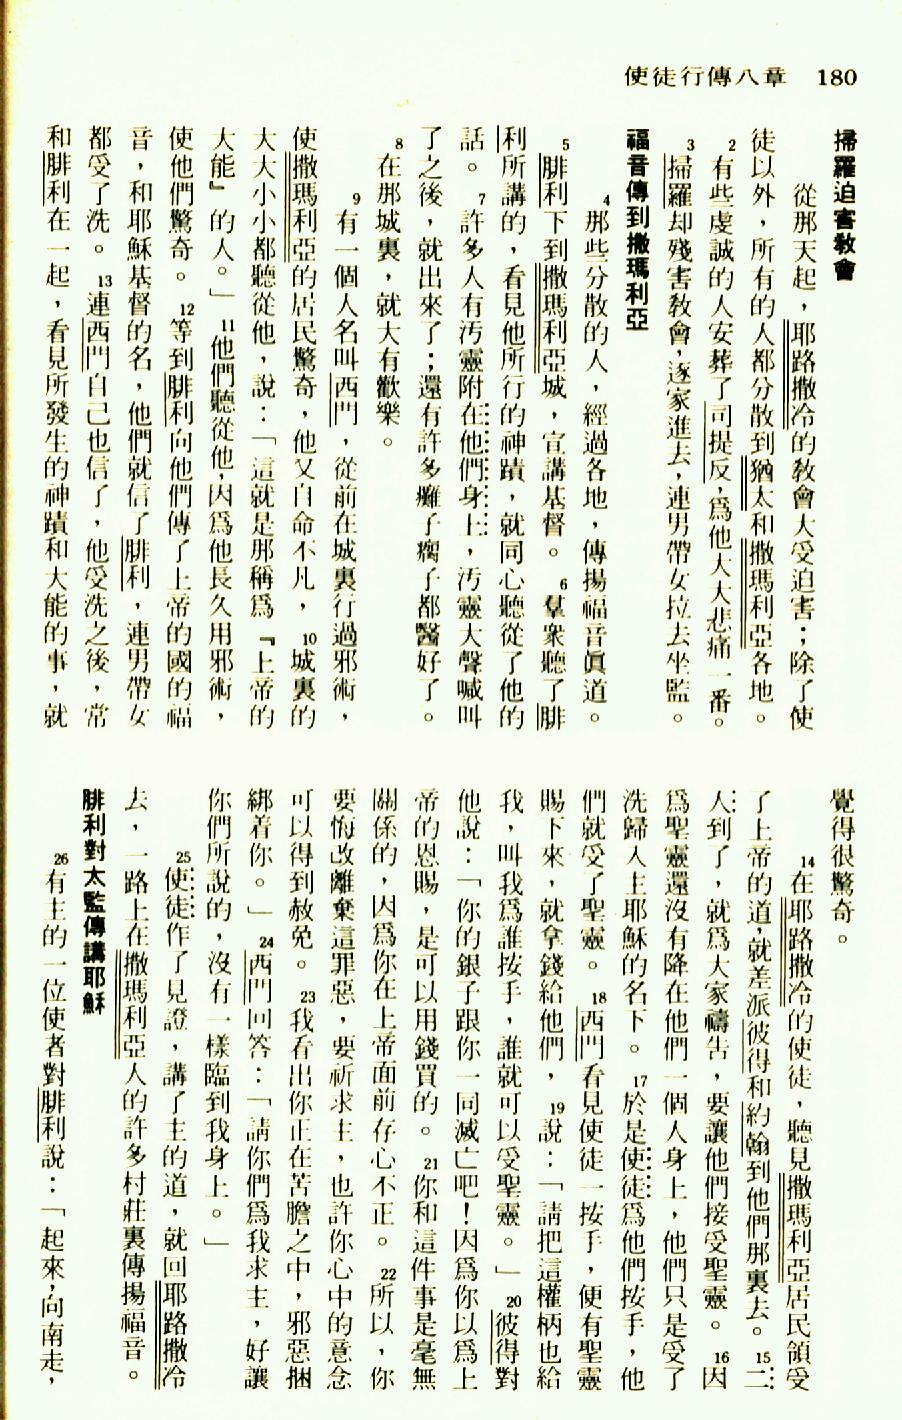 使徒行傳八章　180
掃羅迫害教會
從那天起，耶路撒冷的教會大受迫害；除了使
徒以外，所有的人都分散到猶太和撒瑪利亞各地。
2有些虔誠的人安葬了司提反，爲他大大悲痛一番。
3掃羅却殘害教會，逐家進去，連男帶女拉去坐監。
福音傳到撒瑪利亞
4那些分散的人，經過各地，傳揚福音眞道。
5腓利下到撒瑪利亞城，宣講基督。6羣衆聽了腓
利所講的，看見他所行的神蹟，就同心聽從了他的
話。7許多人有汚靈附在他們身上，汚靈大聲喊叫
了之後，就出來了；還有許多癱子瘸子都醫好了。
8在那城裏，就大有歡樂。
9有一個人名叫西門，從前在城裏行過邪術，
使撒瑪利亞的居民驚奇，他又自命不凡，10城裏的
大大小小都聽從他，說：「這就是那稱爲『上帝的
大能』的人。」11他們聽從他，因爲他長久用邪術，
使他們驚奇。12等到腓利向他們傳了上帝的國的福
音，和耶穌基督的名，他們就信了腓利，連男帶女
都受了洗。13連西門自己也信了，他受洗之後，常
和腓利在一起，看見所發生的神蹟和大能的事，就
覺得很驚奇。
14在耶路撒冷的使徒，聽見撒瑪利亞居民領受
了上帝的道，就差派彼得和約翰到他們那裏去。15二
人到了，就爲大家禱告，要讓他們接受聖靈。16因
爲聖靈還沒有降在他們一個人身上，他們只是受了
洗歸入主耶穌的名下。17於是使徒爲他們按手，他
們就受了聖靈。18西門看見使徒一按手，便有聖靈
賜下來，就拿錢給他們，19說：「請把這權柄也給
我，叫我爲誰按手，誰就可以受聖靈。」20彼得對
他說：「你的銀子跟你一同滅亡吧！因爲你以爲上
帝的恩賜，是可以用錢買的。21你和這件事是毫無
關係的，因爲你在上帝面前存心不正。22所以，你
要悔改離棄這罪惡，要祈求主，也許你心中的意念
可以得到赦免。23我看出你正在苦膽之中，邪惡捆
綁着你。」24西門回答：「請你們爲我求主，好讓
你們所說的，沒有一樣臨到我身上。」
25使徒作了見證，講了主的道，就回耶路撒冷
去，一路上在撒瑪利亞人的許多村莊裏傳揚福音。
腓利對太監傳講耶穌
26有主的一位使者對腓利說：「起來，向南走，